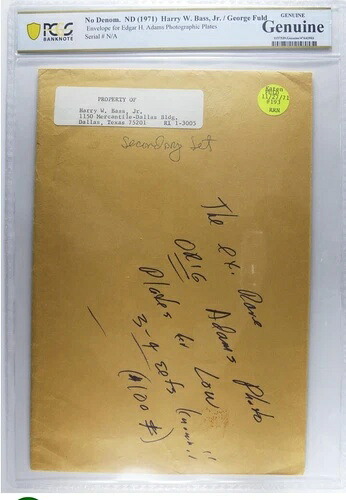 PCGS
BANKNOTE
No Denom. ND (1971) Harry W. Bass, Jr. / George Fuld
Envelope for Edgar H. Adams Photographic Plates
Serial # N/A
GENUINE
Genuine
PROPERTY OF
Harry W. Bass, Jr.
1150 Mercantile-Dallas Bldg.
Dallas, Texas 75201 RI 1-3005
11/27/71
#193
HWB
Secondary Set
The ex. Dave
ORIG Adams Photo
Plates by Low
3-4 sets